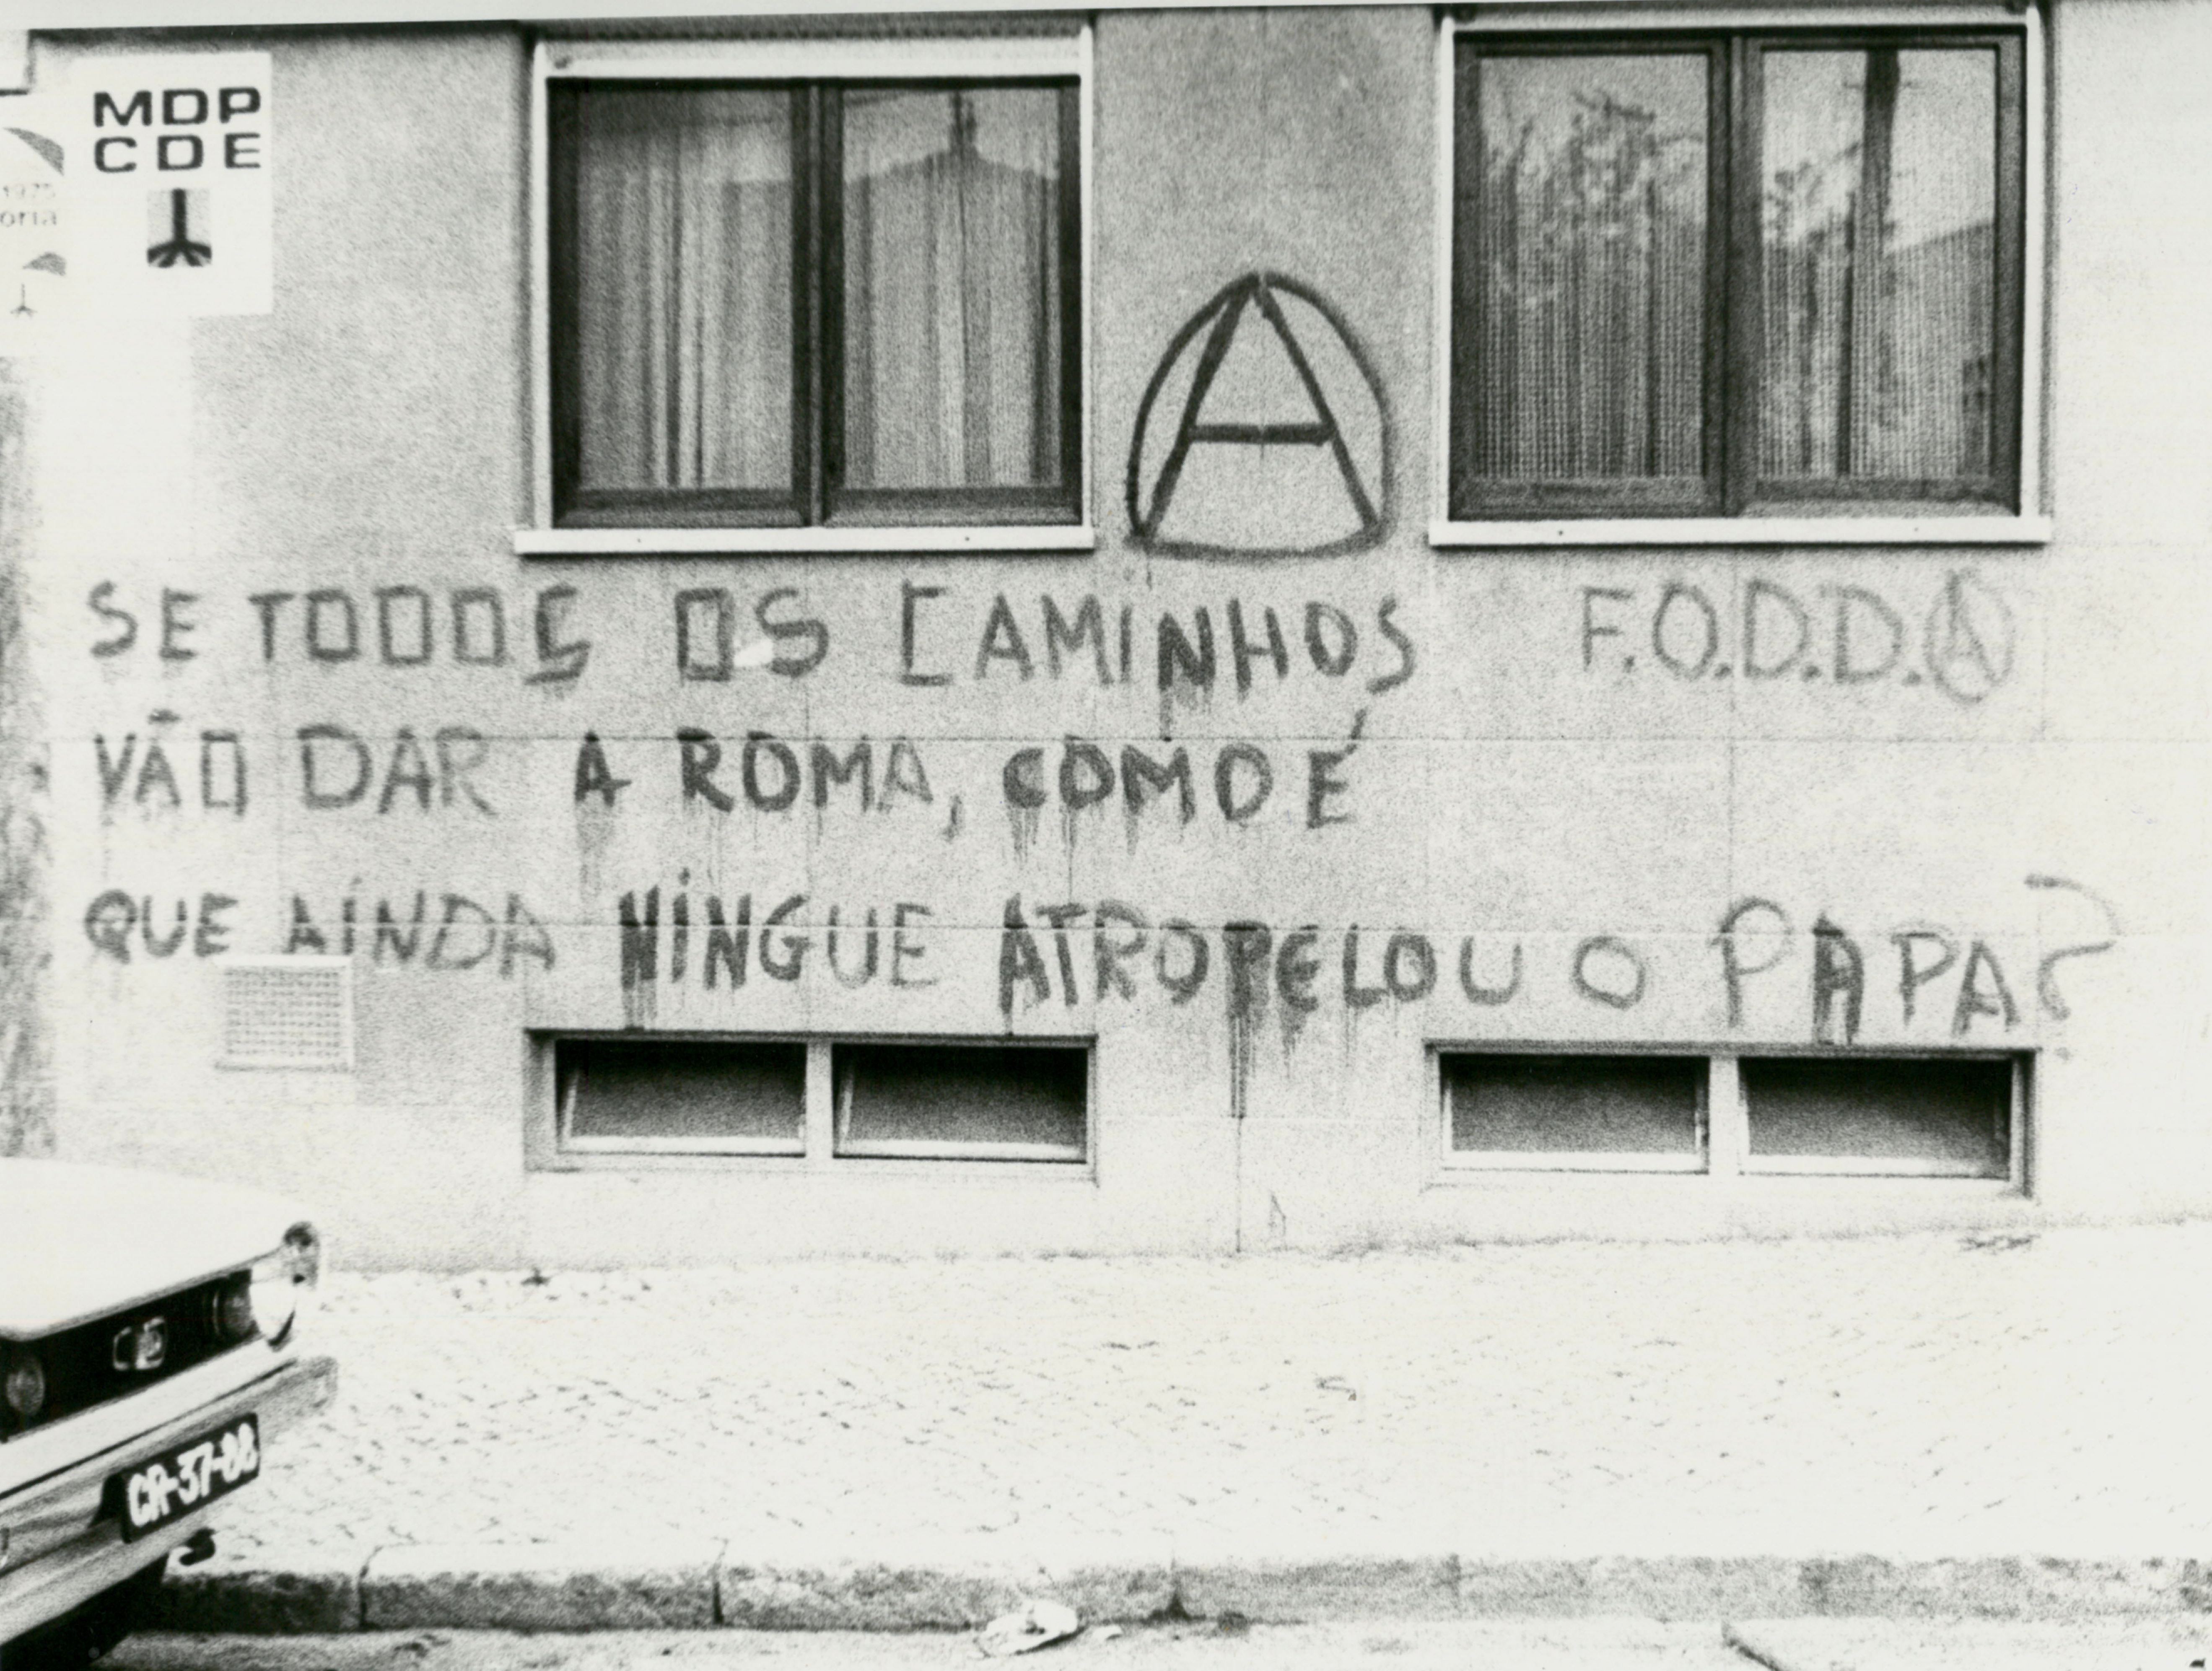 MDP
CDE
1975
A
SE TODOS OS CAMINHOS
F.O.D.D.A
VÃO DAR A ROMA, COMO É
QUE AINDA NINGUE ATROPELOU O PAPA?
CR-37-88